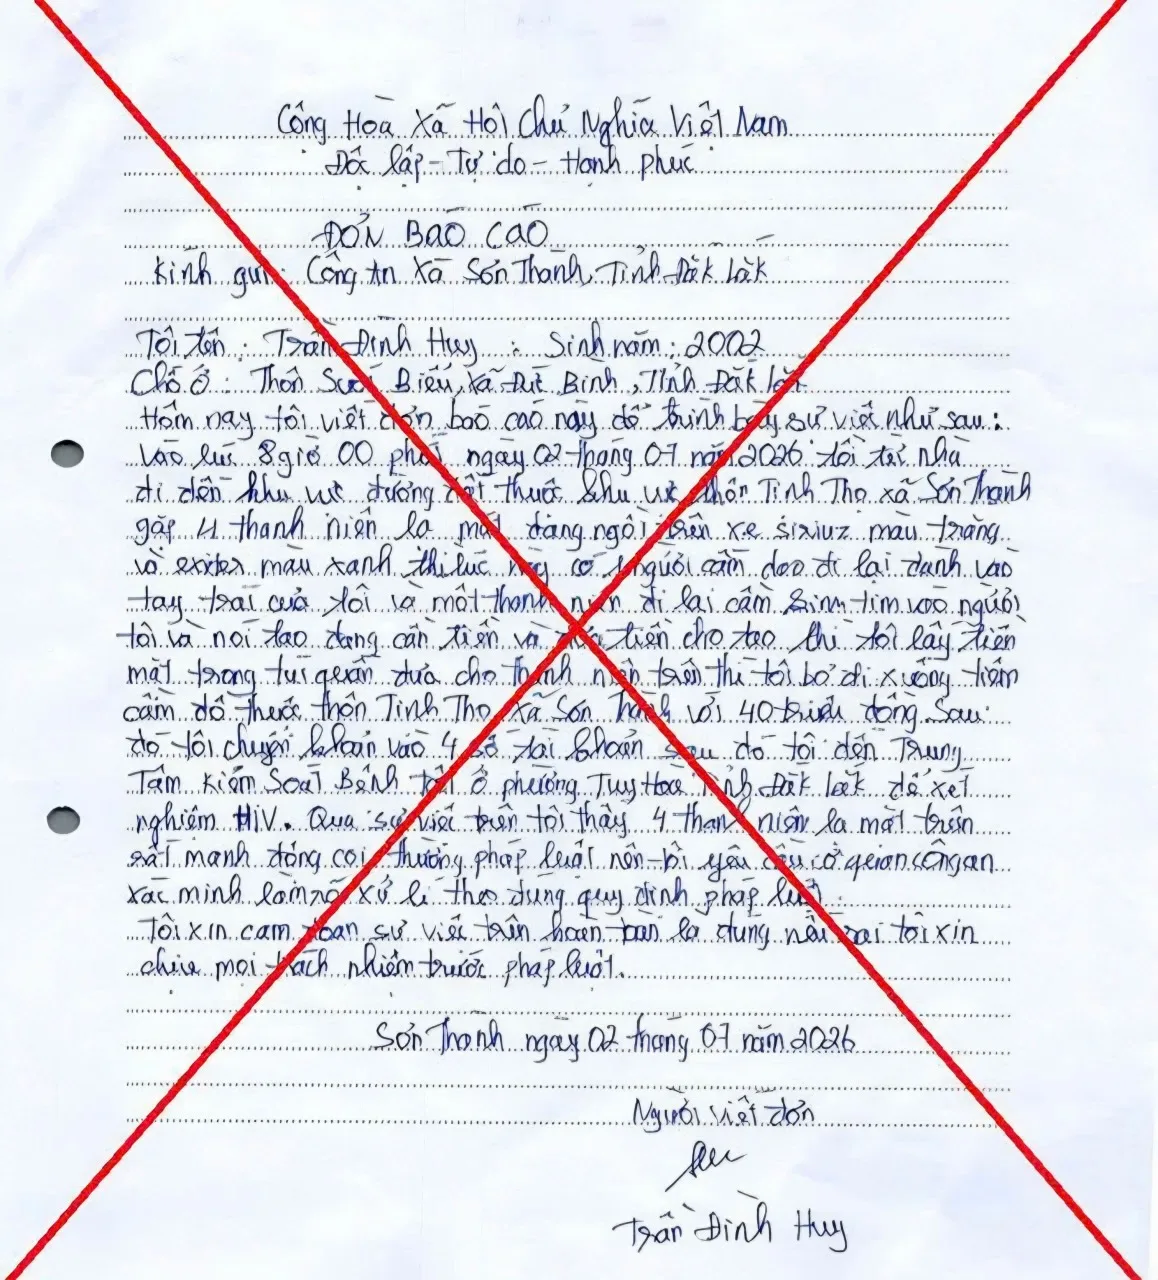 Cộng Hòa Xã Hội Chủ Nghĩa Việt Nam
Độc lập - Tự do - Hạnh phúc
ĐƠN BÁO CÁO
Kính gửi: Công An Xã Sơn Thành, Tỉnh Đăk Lăk
Tôi tên: Trần Đình Huy : Sinh năm: 2002
Chỗ ở: Thôn Suối Biểu, Xã Đức Bình, Tỉnh Đăk Lăk
Hôm nay tôi viết đơn báo cáo này để trình bày sự việc như sau:
vào lúc 8 giờ 00 phút ngày 02 tháng 07 năm 2026 tôi từ nhà
đi đến khu vực đường thuộc khu vực thôn Tịnh Thọ xã Sơn Thành
gặp 4 thanh niên lạ mặt đang ngồi trên xe siriuz màu trắng
và exiter màu xanh thì lúc này có 1 người cầm dao đi lại đánh vào
tay trái của tôi và một thanh niên đi lại cầm sinm tim vào người
tôi và nói tao đang cần tiền và đưa tiền cho tao thì tôi lấy tiền
mặt trong túi quần đưa cho thanh niên trên thì tôi bỏ đi xuống tiệm
cầm đồ thuộc thôn Tịnh Thọ, Xã Sơn Thành với 40 triệu đồng. Sau
đó tôi chuyển khoản vào 4 số tài khoản sau đó tôi đến Trung
Tâm Kiểm Soát Bệnh tật ở phường Tuy Hòa Tỉnh Đăk Lăk để xét
nghiệm HIV. Qua sự việc trên tôi thấy 4 than niên lạ mặt trên
rất manh động coi thường pháp luật nên bị yêu cầu cơ quan công an
xác minh làm rõ xử lí theo đúng quy định pháp luật.
Tôi xin cam đoan sự việc trên hoàn toàn là đúng nếu sai tôi xin
chịu mọi trách nhiệm trước pháp luật.
Sơn Thành ngày 02 tháng 07 năm 2026
Người viết đơn
Trần Đình Huy